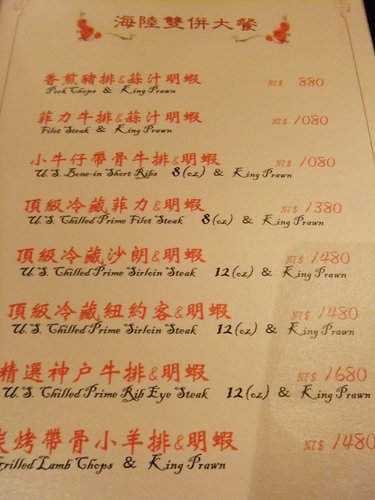 海陸雙併大餐
香煎豬排&蒜汁明蝦 NT$ 880
Pork Chops & King Prawn
菲力牛排&蒜汁明蝦 NT$ 1080
Filet Steak & King Prawn
小牛仔帶骨牛排&明蝦 NT$ 1080
U.S. Bone-in Short Ribs 8(oz) & King Prawn
頂級冷藏菲力&明蝦 NT$ 1380
U.S. Chilled Prime Filet Steak 8(oz) & King Prawn
頂級冷藏沙朗&明蝦 NT$ 1480
U.S. Chilled Prime Sirloin Steak 12(oz) & King Prawn
頂級冷藏紐約客&明蝦 NT$ 1480
U.S. Chilled Prime Sirloin Steak 12(oz) & King Prawn
精選神戶牛排&明蝦 NT$ 1680
U.S. Chilled Prime Rib Eye Steak 12(oz) & King Prawn
炭烤帶骨小羊排&明蝦 NT$ 1480
Grilled Lamb Chops & King Prawn